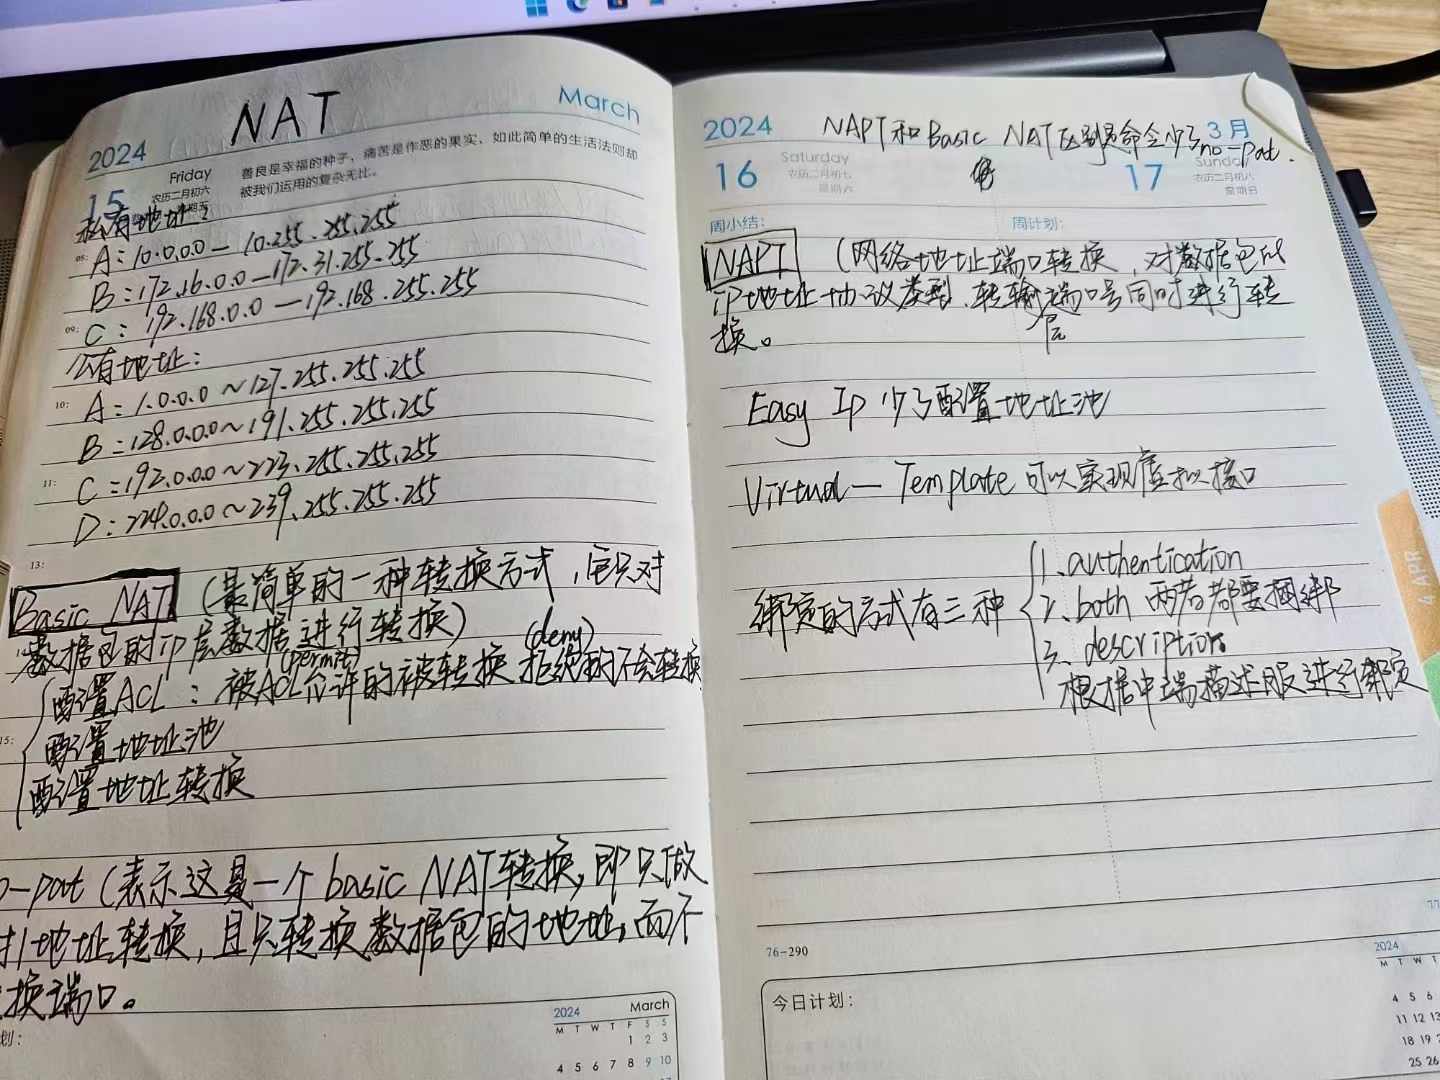 NAT
March
2024
15
Friday
农历二月初六
星期五
善良是幸福的种子，痛苦是作恶的果实，如此简单的生活法则却
被我们运用的复杂无比。
私有地址：
A：10.0.0.0 — 10.255.255.255
B：172.16.0.0 — 172.31.255.255
C：192.168.0.0 — 192.168.255.255
09:
公有地址：
10:
A：1.0.0.0 ~ 127.255.255.255
B：128.0.0.0 ~ 191.255.255.255
11:
C：192.0.0.0 ~ 223.255.255.255
D：224.0.0.0 ~ 239.255.255.255
13:
Basic NAT （最简单的一种转换方式，它只对
数据包的ip层数据进行转换）
(permit) (deny)
配置ACL：被ACL允许的被转换 拒绝的不会转换
15:
配置地址池
配置地址转换
o-pat（表示这是一个basic NAT转换，即只做
1地址转换，且只转换数据包的地址，而不
换端口。
划：
2024 March
M T W T F S S
1 2 3
4 5 6 7 8 9 10
2024
3 月
NAPT和Basic NAT区别是命令少了no-pat.
16
Saturday
农历二月初七
星期六
17
Sunday
农历二月初八
星期日
周小结：
周计划：
NAPT （网络地址端口转换，对数据包的
ip地址 协议类型、转输端口号同时进行转
层
换。
Easy Ip 少了配置地址池
Virtual — Template 可以实现虚拟接口
绑定的方式有三种
1、authentication
2、both 两者都要捆绑
3、description
根据中端描述服进行绑定
4 APR
76-290
77
今日计划：
2024
M T W
4 5 6
11 12 13
18 19 2
25 26